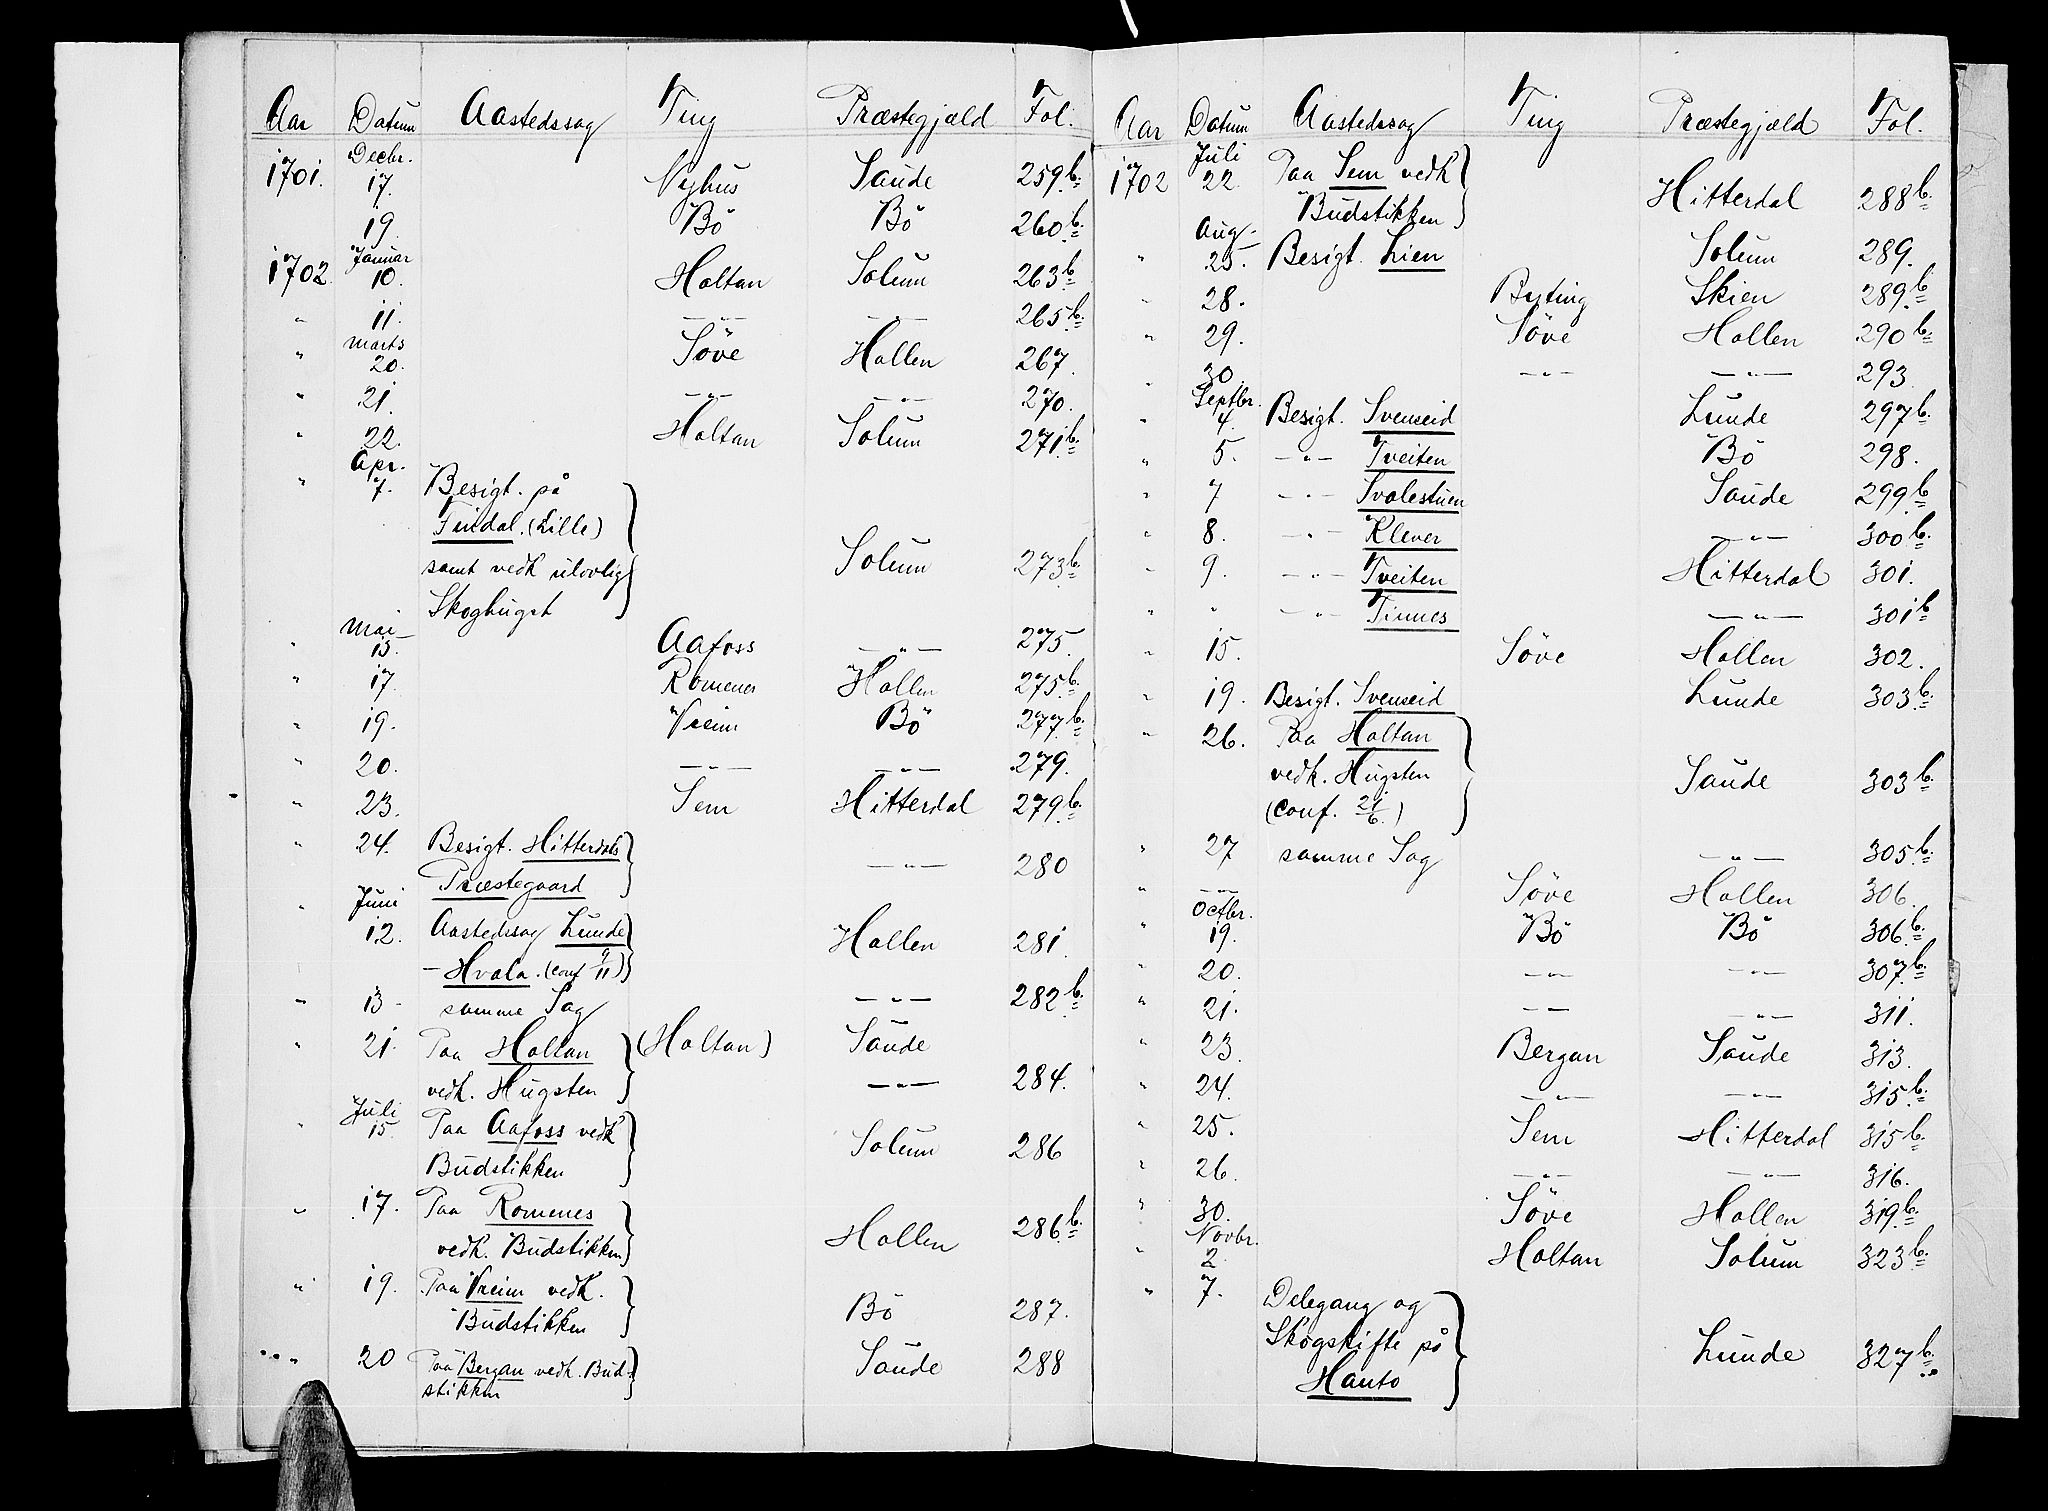 Aar Datum Aastedssag Ting Præstegjæld Fol.
1701. Decbr. 17. Nyhus Saude 259.b.
19. Bö Bö 260.b.
1702. Januar 10. Holtan Solum 263.b.
" 11. —"— —"— 265.b.
" Marts 20. Söve Hollen 267.
" 21. —"— —"— 270.
" 22. Holtan Solum 271.b.
" Apr. 7. Besigt. på
Findal. (Lille)
samt vedk ulovlig Solum 273.b.
Skoghugst
" Mai 13. Aafoss —"— 275.
" 17. Romenes Hollen 275.b.
" 19. Vreim Bö 277.b.
" 20. —"— —"— 279.
" 23. Sem Hitterdal 279.b.
" 24. Besigt. Hitterdals
Præstegaard —"— 280
" Juni 12. Aastedssag Lunde Hollen 281.
— Hvala. (conf 9/11)
" 13 - samme Sag —"— 282.b.
" 21. Paa Holtan (Holtan) Saude
vedk. Hugsten —"— 284.
" Juli 15. Paa Aafoss vedk Solum 286
Budstikken
" 17. Paa Romenes Hollen 286.b.
vedk. Budstikken
" 19. Paa Vreim vedk. Bö 287.
Budstikken
" 20 Paa Bergan vedk. Bud= Saude 288
stikken
Aar Datum Aastedssag Ting Præstegjæld Fol.
1702 Juli 22. Paa Sem vedk Hitterdal 288.b.
Budstikken
" Aug. 25. Besigt. Lien Solum 289.
" 28. Byting Skien 289.b.
" 29. Söve Hollen 290.b.
" 30. —"— —"— 293
" Septbr. 4. Besigt. Svenseid Lunde 297.b.
" 5. —"— Tveiten Bö 298.
" 7 —"— Svalestuen Saude 299.b.
" 8. —"— Klever —"— 300.b.
" 9. —"— Tveiten Hitterdal 301.
" " —"— Tinnes —"— 301.b.
" 15. Söve Hollen 302.
" 19. Besigt. Svenseid Lunde 303.b.
" 26. Paa Holtan
vedk. Hugsten Saude 303.b.
(conf. 21/6.)
" 27 samme Sag —"— 305.b.
" —"— Söve Hollen 306.
" Octbr. 19. Bö Bö 306.b.
" 20. —"— —"— 307.b.
" 21. —"— —"— 311.
" 23. Bergan Saude 313.
" 24. —"— —"— 315.b.
" 25. Sem Hitterdal 315.b.
" 26. —"— —"— 316.
" 30. Söve Hollen 319.b.
" Novbr. 2. Holtan Solum 323.b.
" 7. Delegang og
Skogskifte på Lunde 327.b.
Hauto